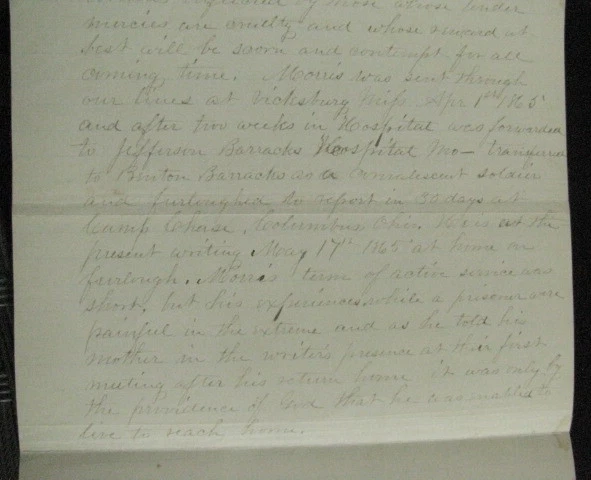 by those whose tender
mercies are cruelty and whose reward at
best will be scorn and contempt for all
coming time. Morris was sent through
our lines at Vicksburg Miss. Apr 1st 1865
and after two weeks in Hospital was forwarded
to Jefferson Barracks Hospital Mo- transferred
to Benton Barracks as a convalescent soldier
and furloughed to report in 30 days at
Camp Chase, Columbus Ohio. He is at the
present writing May 17th 1865 at home on
furlough. Morris term of active service was
short, but his experiences while a prisoner were
painful in the extreme and as he told his
mother in the writer's presence at their first
meeting after his return home it was only by
the providence of God that he was enabled to
live to reach home.